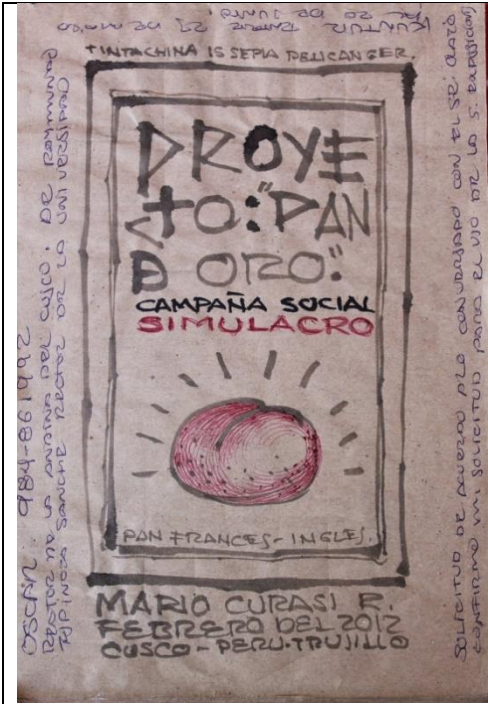 KUNTUR PARQUE 29 DE
AL 20 DE JUNIO.
TINTA CHINA IS SEPIA PELICAN GER.
PROYE
CTO: "PAN
D ORO."
CAMPAÑA SOCIAL
SIMULACRO
PAN FRANCES - INGLES.
MARIO CURASI R.
FEBRERO DEL 2012
CUSCO - PERU - TRUJILLO
OSCAR : 984-861992
RECTOR DE LA ANDINA DEL CUSCO. DR RAYMUNDO
ESPINOZA SANCHE RECTOR DE LA UNIVERSIDAD
SOLICITUD DE ACUERDO A LO CONVERSADO CON EL SR: DARIO
CONFIRMO MI SOLICITUD PARA EL USO DE LA S. EXPOSICION